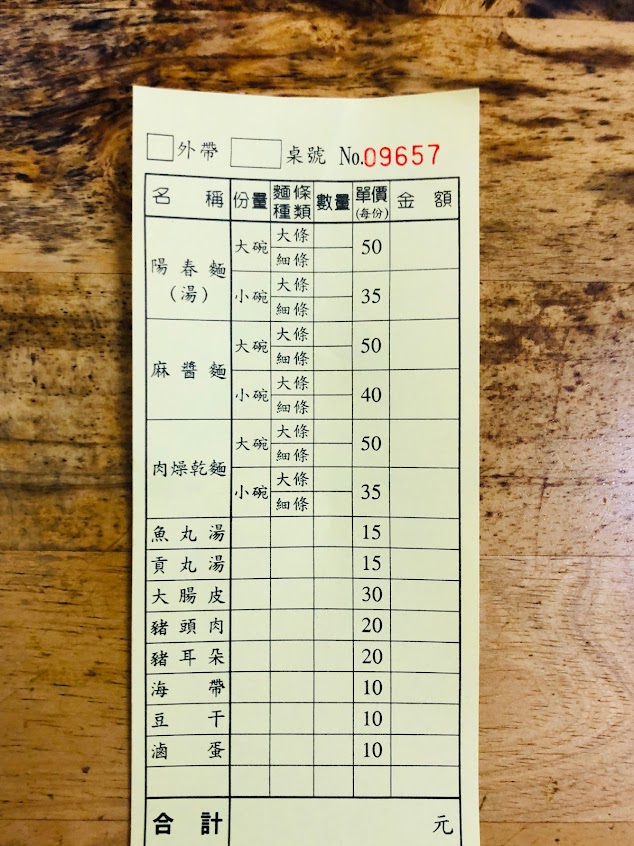 外帶 桌號 No.09657
名稱 份量 麵條種類 數量 單價(每份) 金額
陽春麵(湯) 大碗 大條 細條 50
小碗 大條 細條 35
麻醬麵 大碗 大條 細條 50
小碗 大條 細條 40
肉燥乾麵 大碗 大條 細條 50
小碗 大條 細條 35
魚丸湯 15
貢丸湯 15
大腸皮 30
豬頭肉 20
豬耳朵 20
海帶 10
豆干 10
滷蛋 10
合計 元